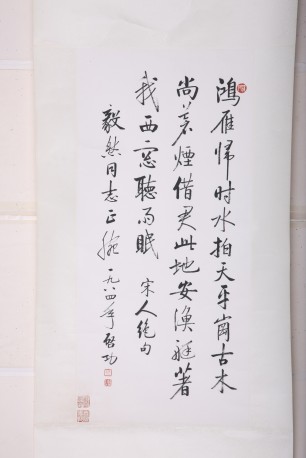 鴻雁帰时水拍天平崗古木
尚蒼煙借君此地安漁艇著
我西窓聽雨眠 宋人絶句
毅然同志正腕 一九八四年 啓功